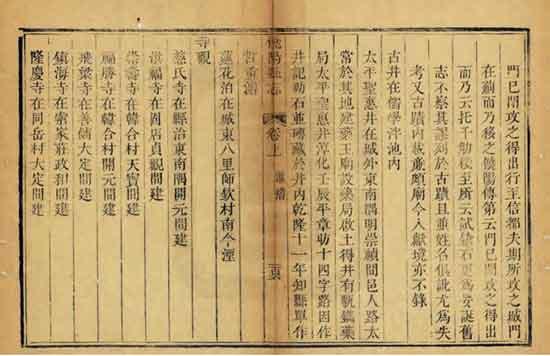 門已閉攻之得出行至信都夫期所攻之城門
在薊而乃移之饒陽傳第云門已閉攻之得出
而乃云托千觔校至所云試鎗石更為妄誕舊
志不察其謬列於古蹟且並姓名俱訛尤為失
考又古蹟內載頤廟今入獻境亦不錄
古井在儒學泮池內
太平聖惠井在城外東南隅明崇禎間邑人路太
常於其地建藥王廟設藥局啟土得井有甎鐫藥
局太平聖惠井淳化壬辰平章十四字路因作
井記勒石並磚藏於井內乾隆十一年知縣單作
饒陽縣志 卷上
哲重濬
蓮花池在城東八里師欽村南今湮
寺觀
慈氏寺在縣治東南隅開元間建
洪福寺在固店貞觀間建
崇壽寺在韓合村天寶間建
福勝寺在韓合村開元間建
飛梁寺在善大定間建
鎮海寺在索家莊政和間建
隆慶寺在同岳村大定間建